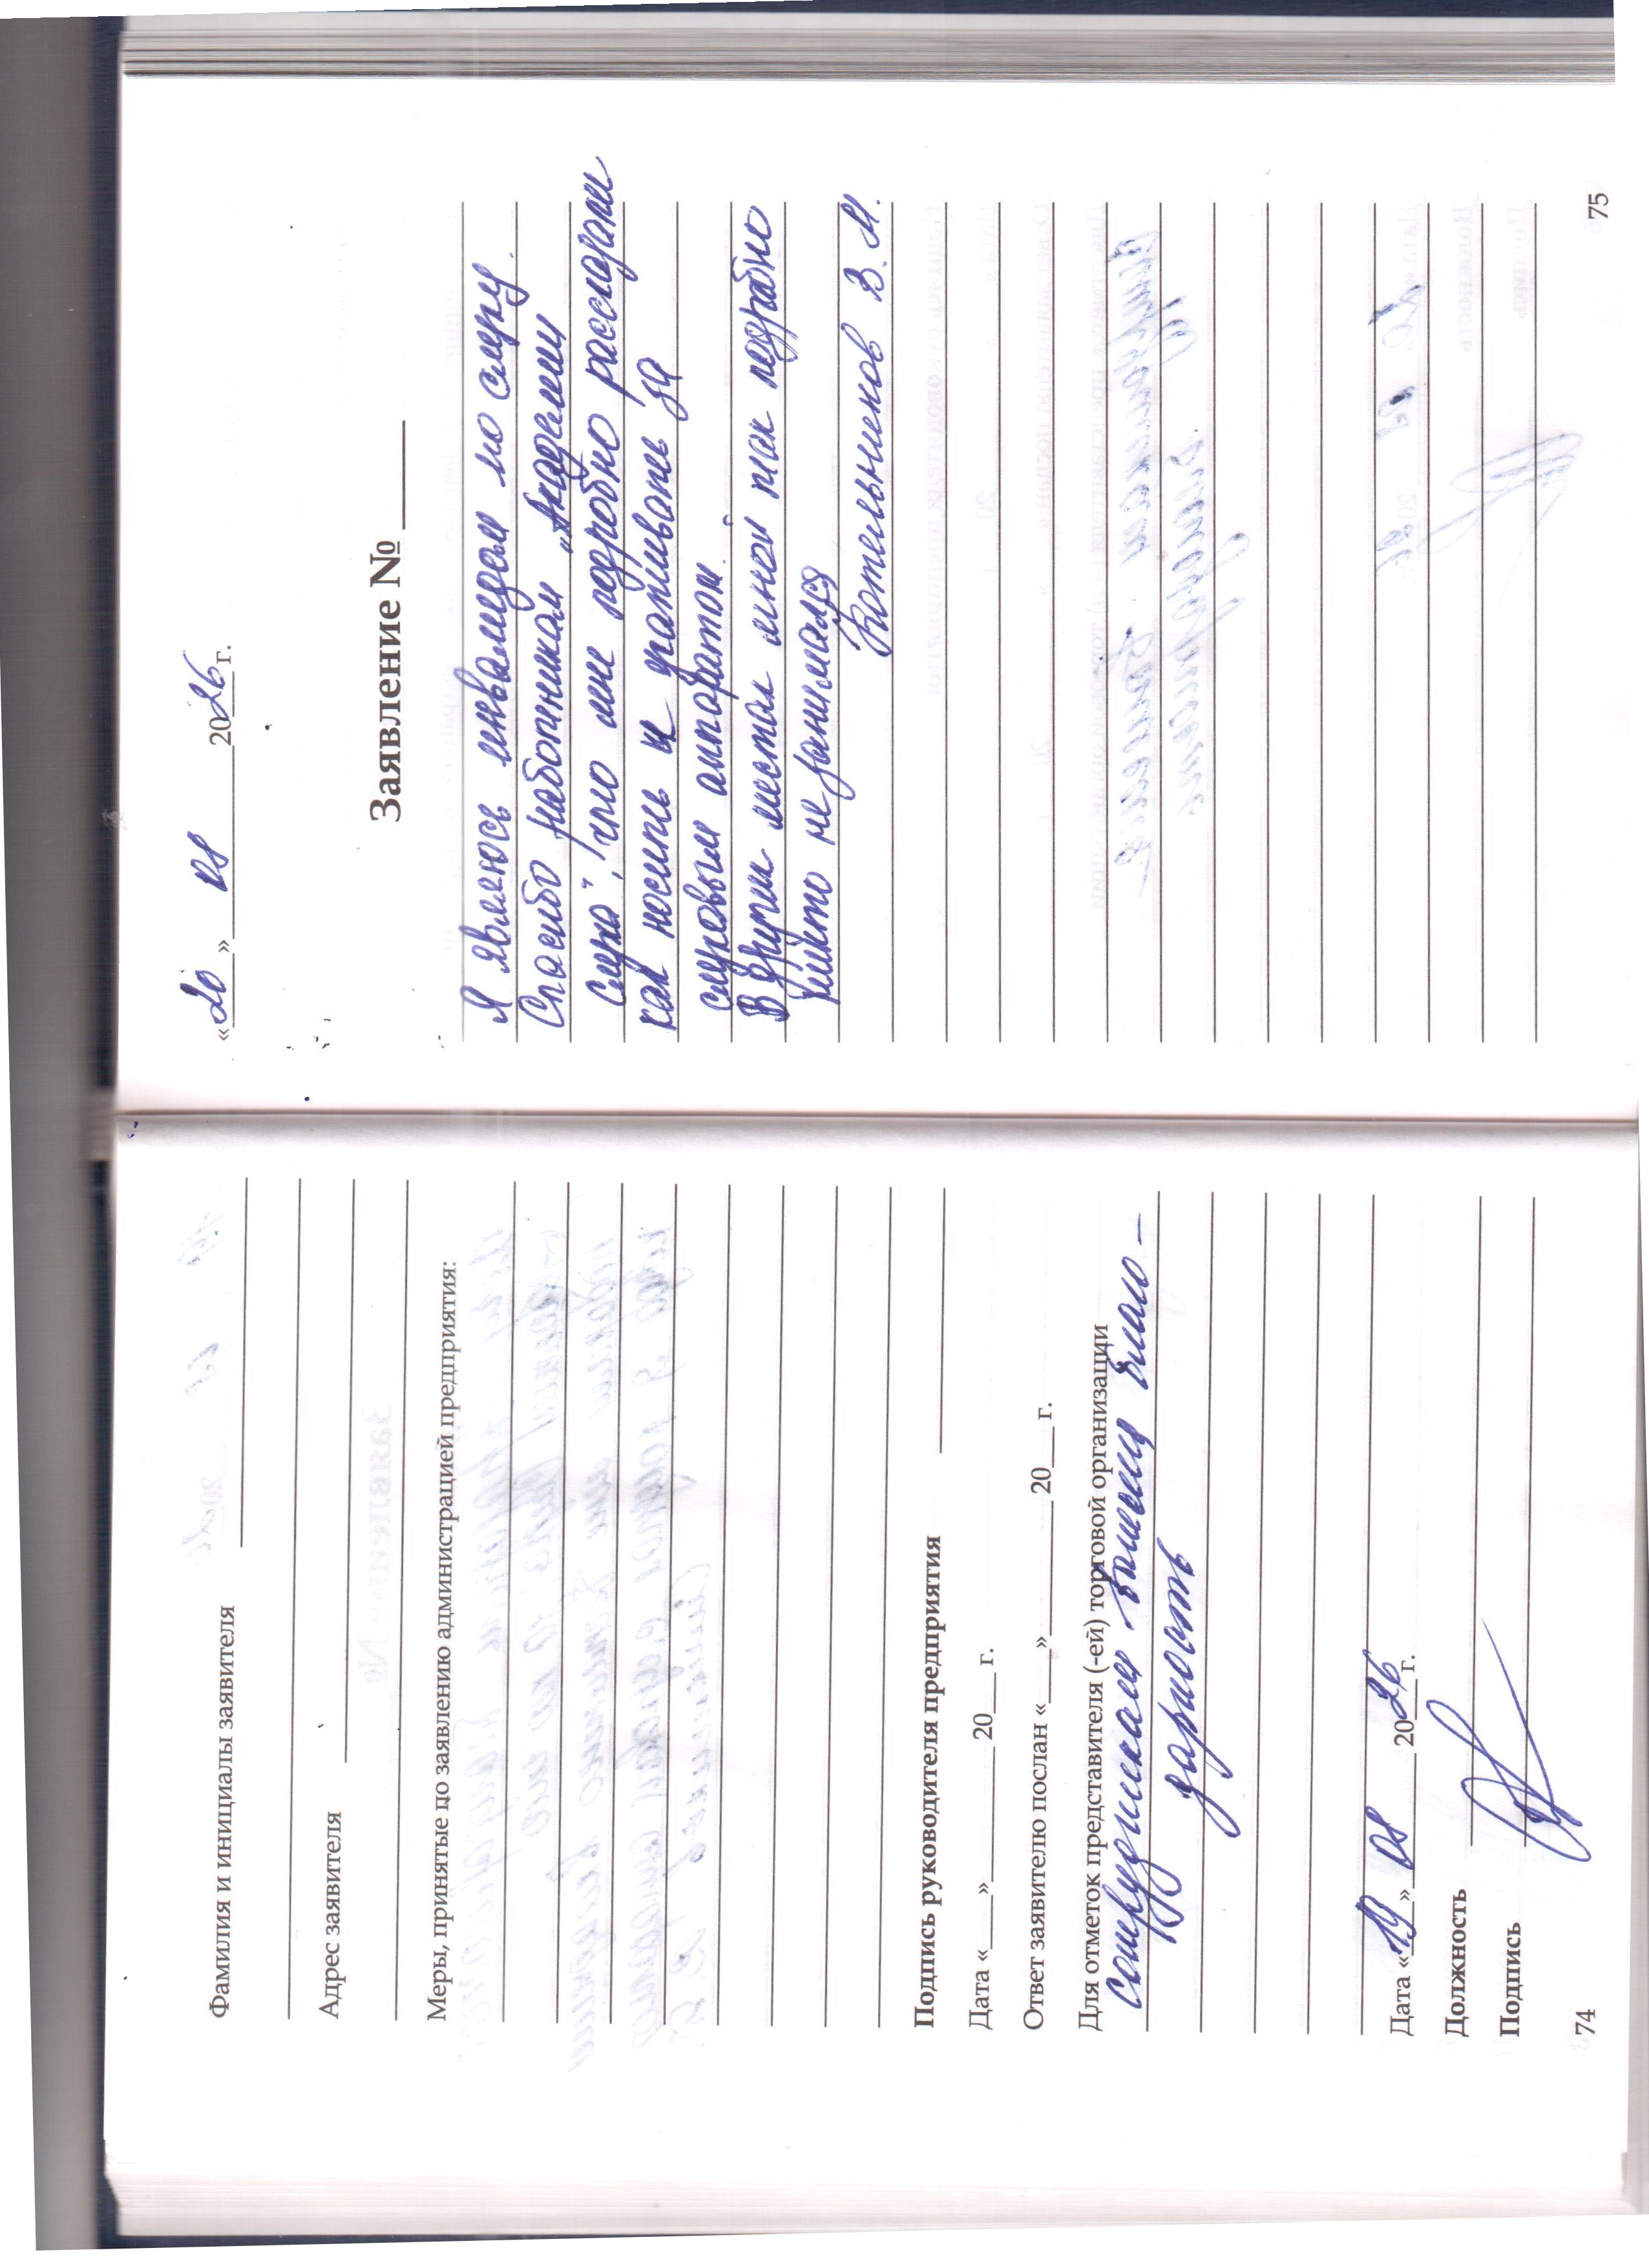 Фамилия и инициалы заявителя
Адрес заявителя
Меры, принятые по заявлению администрацией предприятия:
Подпись руководителя предприятия
Дата «___»________ 20___ г.
Ответ заявителю послан «___»________ 20___ г.
Для отметок представителя (-ей) торговой организации
сотрудникам вынесена благо-
дарность
Дата «19» 01 2026 г.
Должность
Подпись
74
«20» 01 2026 г.
Заявление № ____
Я являюсь инвалидом по слуху.
Спасибо работникам „Академии
слуха", что мне подробно рассказали
как носить и ухаживать за
слуховым аппаратом.
В других местах мной так подробно
никто не занимался
Котельников В. М.
75